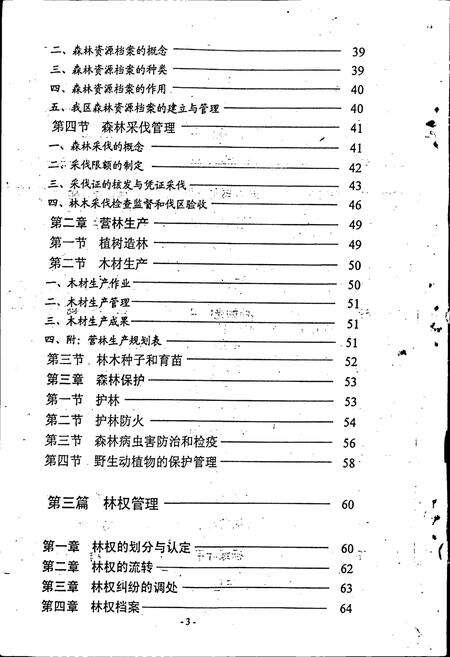 二、森林资源档案的概念 39
三、森林资源档案的种类 39
四、森林资源档案的作用 40
五、我区森林资源档案的建立与管理 40
第四节 森林采伐管理 41
一、森林采伐的概念 41
二、采伐限额的制定 42
三、采伐证的核发与凭证采伐 43
四、林木采伐检查监督和伐区验收 46
第二章 营林生产 49
第一节 植树造林 49
第二节 木材生产 50
一、木材生产作业 50
二、木材生产管理 51
三、木材生产成果 51
四、附：营林生产规划表 51
第三节 林木种子和育苗 52
第三章 森林保护 53
第一节 护林 53
第二节 护林防火 54
第三节 森林病虫害防治和检疫 56
第四节 野生动植物的保护管理 58
第三篇 林权管理 60
第一章 林权的划分与认定 60
第二章 林权的流转 62
第三章 林权纠纷的调处 63
第四章 林权档案 64
- 3 -